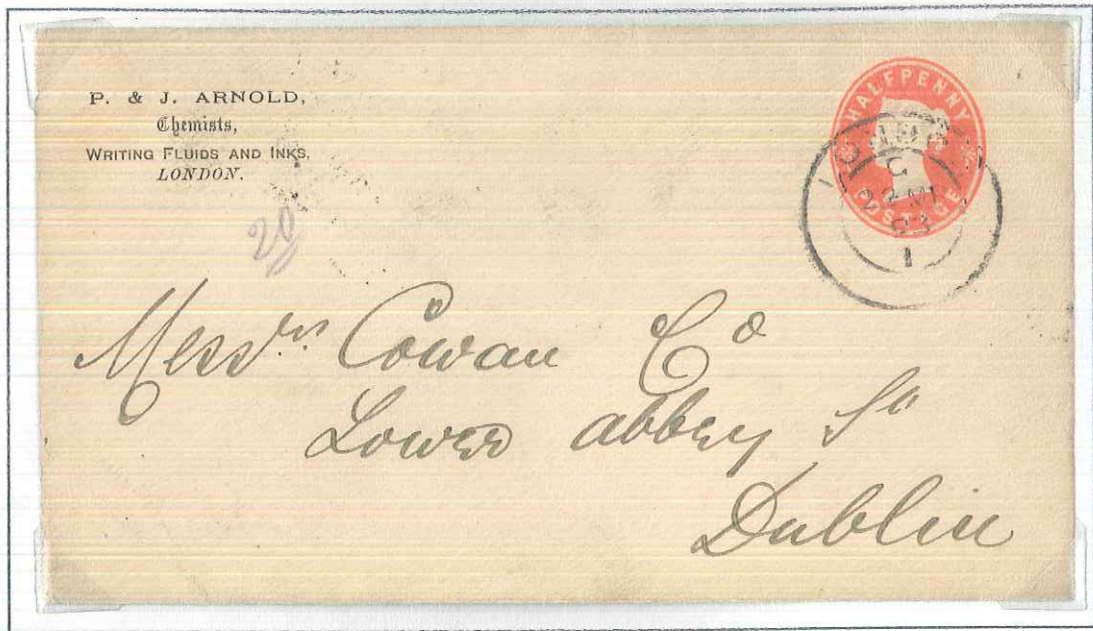 P. & J. ARNOLD,
Chemists,
WRITING FLUIDS AND INKS,
LONDON.
HALFPENNY
POSTAGE
C
93
1
20
Messrs Cowan Co
Lower abbey St
Dublin